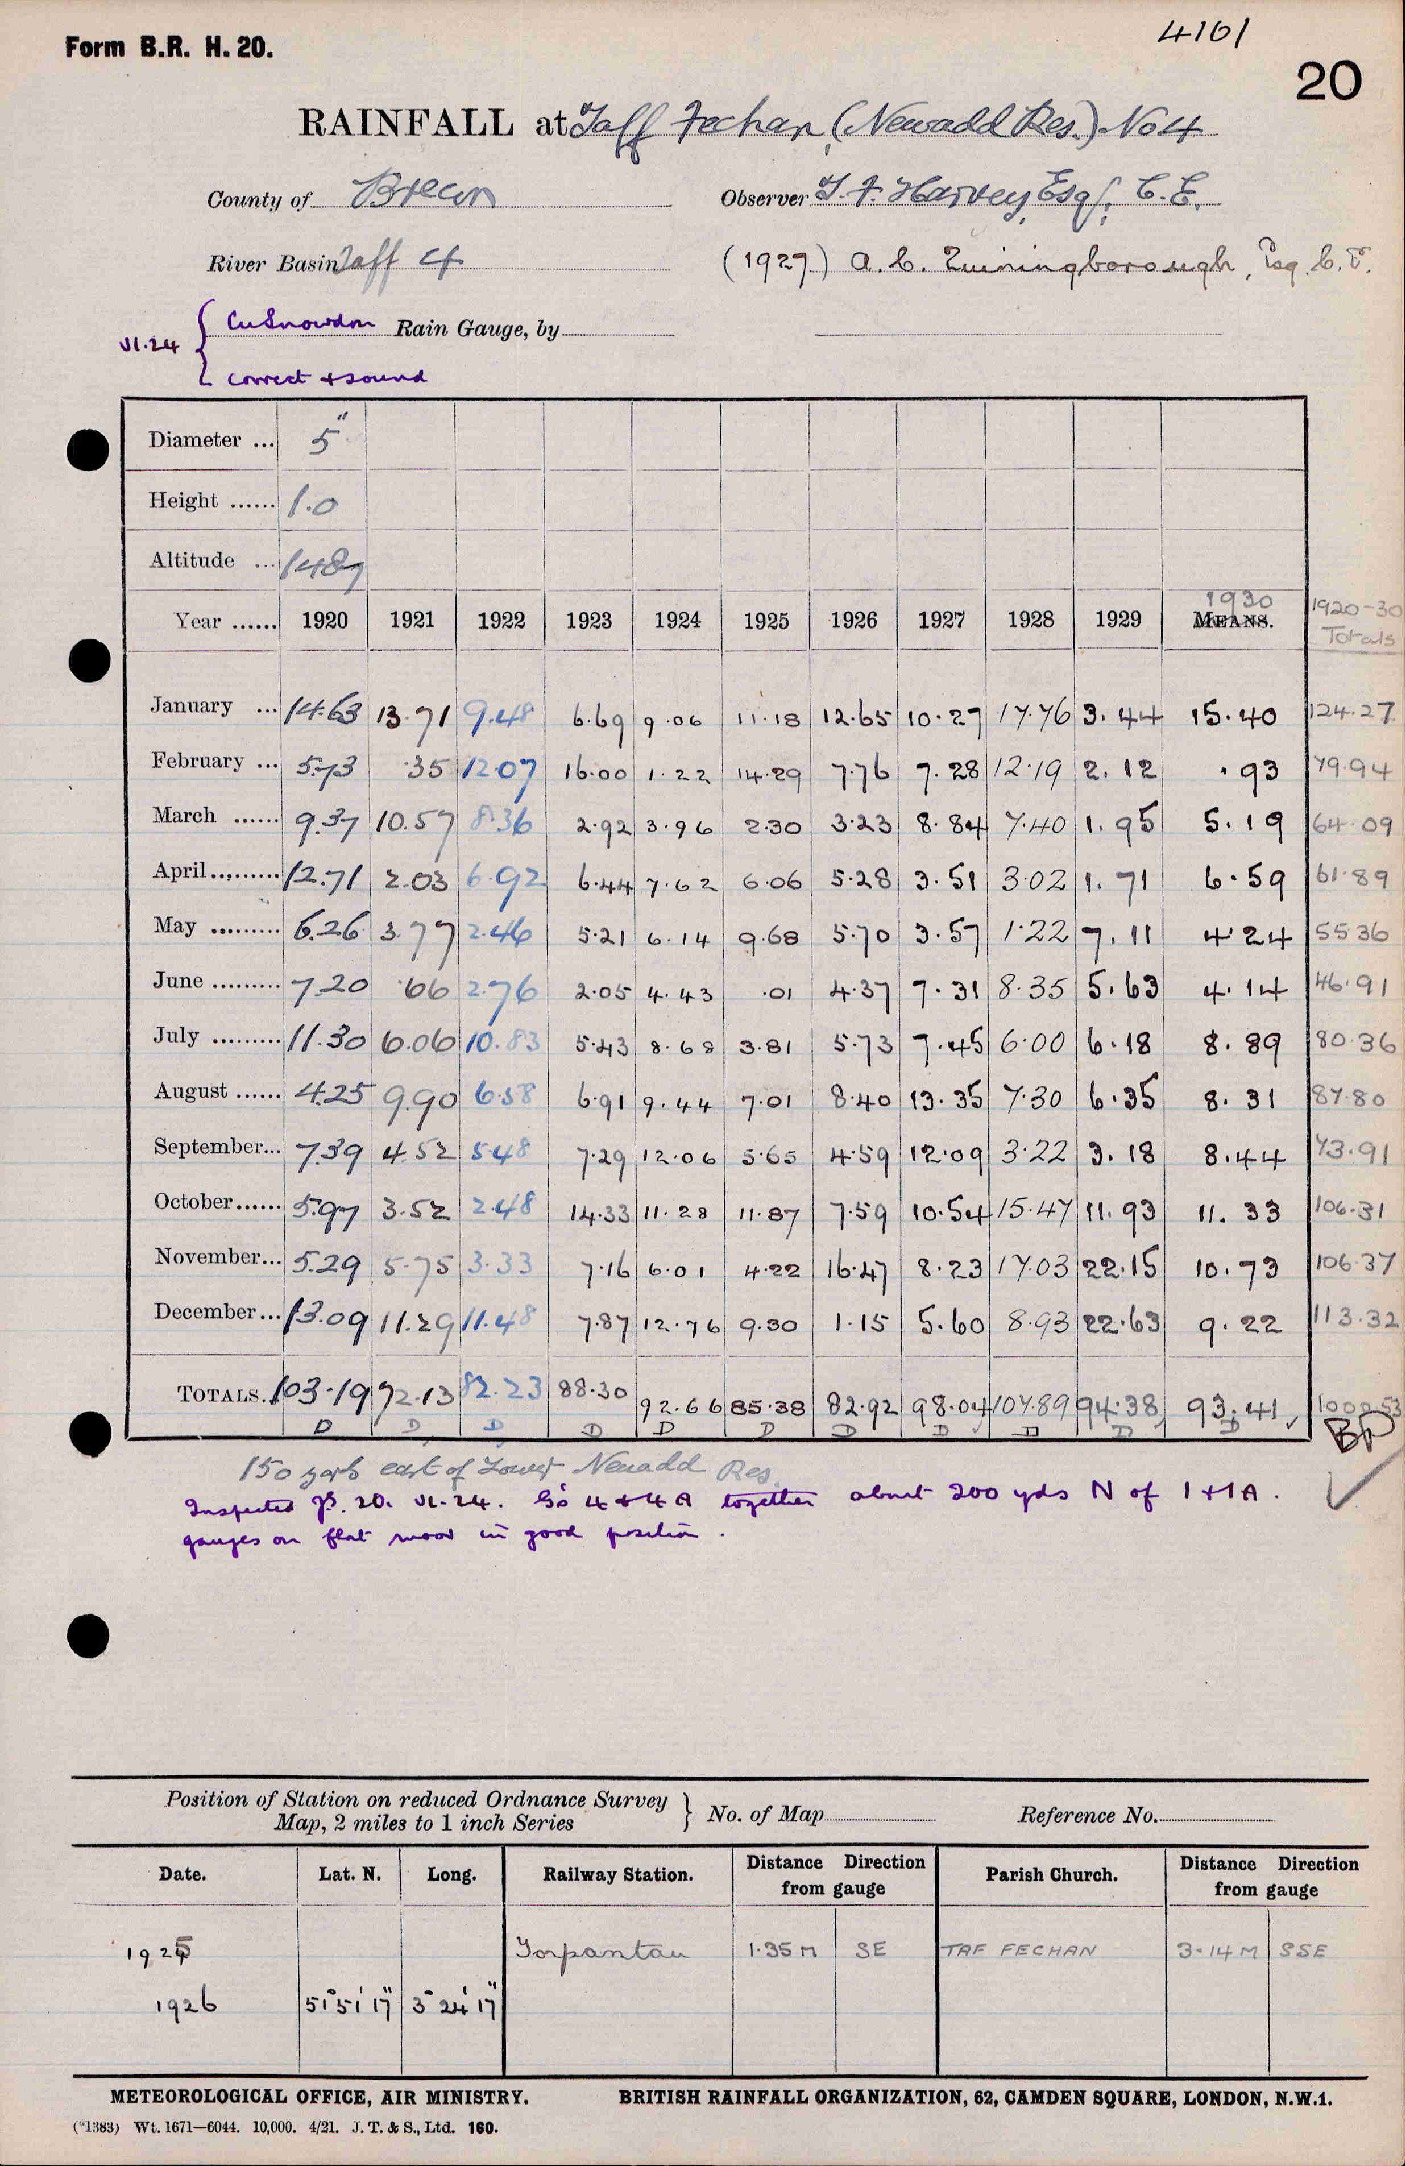 Form B.R. H. 20.
4161
20
RAINFALL at Taff Fechan, (Newadd Res.) No 4
County of Brecon
Observer T. F. Harvey, Esq., C. E.
River Basin Taff 4
(1927) A. C. Esq. C. E.
VI.24 { Cu Snowdon Rain Gauge, by
correct & sound
Diameter ... 5"
Height ...... 1.0
Altitude ... 1487
Year ...... 1920 1921 1922 1923 1924 1925 1926 1927 1928 1929 MEANS. 1930 1920-30 Totals
January ... 14.63 13.71 9.48 6.69 9.06 11.18 12.65 10.27 17.76 3.44 15.40 124.27
February ... 5.73 .35 12.07 16.00 1.22 14.29 7.76 7.28 12.19 2.12 .93 79.94
March ...... 9.37 10.57 8.36 2.92 3.96 2.30 3.23 8.84 7.40 1.95 5.19 64.09
April ......... 12.71 2.03 6.92 6.44 7.62 6.06 5.28 3.51 3.02 1.71 6.59 61.89
May ......... 6.26 3.77 2.46 5.21 6.14 9.68 5.70 3.57 1.22 7.11 4.24 55.36
June ......... 7.20 .66 2.76 2.05 4.43 .01 4.37 7.31 8.35 5.63 4.14 46.91
July ......... 11.30 6.06 10.83 5.43 8.68 3.81 5.73 7.45 6.00 6.18 8.89 80.36
August ...... 4.25 9.90 6.58 6.91 9.44 7.01 8.40 13.35 7.30 6.35 8.31 87.80
September... 7.39 4.52 5.48 7.29 12.06 5.65 4.59 12.09 3.22 3.18 8.44 73.91
October...... 5.97 3.52 2.48 14.33 11.28 11.87 7.59 10.54 15.47 11.93 11.33 106.31
November... 5.29 5.75 3.33 7.16 6.01 4.22 16.47 8.23 17.03 22.15 10.73 106.37
December... 13.09 11.29 11.48 7.87 12.76 9.30 1.15 5.60 8.93 22.63 9.22 113.32
TOTALS. 103.19 72.13 82.23 88.30 92.66 85.38 82.92 98.04 107.89 94.38 93.41 1000.53
D D D D D D D D D D D BP
150 yards east of Lower Neuadd Res.
Inspected 20. VI. 24. 4 & 4A together about 200 yds N of 1 & 1A.
gauges on flat moor in good position.
Position of Station on reduced Ordnance Survey Map, 2 miles to 1 inch Series } No. of Map Reference No.
Date. Lat. N. Long. Railway Station. Distance Direction from gauge Parish Church. Distance Direction from gauge
1925 Torpantau 1.35 M SE TAF FECHAN 3.14 M SSE
1926 51° 51' 17" 3° 24' 17"
METEOROLOGICAL OFFICE, AIR MINISTRY. BRITISH RAINFALL ORGANIZATION, 62, CAMDEN SQUARE, LONDON, N.W.1.
(*1383) Wt. 1671—6044. 10,000. 4/21. J. T. & S., Ltd. 160.